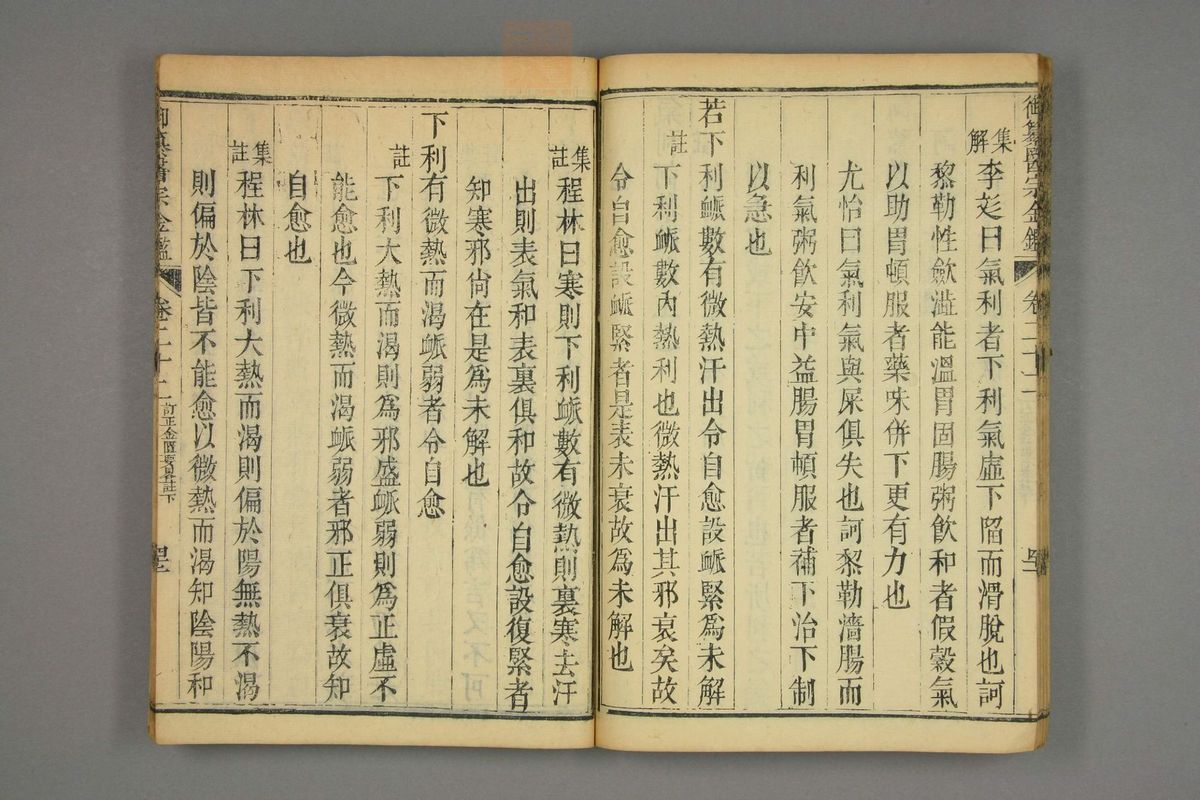 御纂醫宗金鑑 卷二十二
集解 李彣曰氣利者下利氣虛下陷而滑脫也訶
黎勒性歛澁能溫胃固腸粥飲和者假穀氣
以助胃頓服者藥味併下更有力也
尤怡曰氣利氣與屎俱失也訶黎勒濇腸而
利氣粥飲安中益腸胃頓服者補下治下制
以急也
若下利衇數有微熱汗出令自愈設衇緊爲未解
註 下利衇數內熱利也微熱汗出其邪衰矣故
令自愈設衇緊者是表未衰故爲未解也
集註 程林曰寒則下利衇數有微熱則裏寒去汗
出則表氣和表裏俱和故令自愈設復緊者
知寒邪尙在是爲未解也
下利有微熱而渴衇弱者令自愈
註 下利大熱而渴則爲邪盛衇弱則爲正虛不
能愈也今微熱而渴衇弱者邪正俱衰故知
自愈也
集註 程林曰下利大熱而渴則偏於陽無熱不渴
則偏於陰皆不能愈以微熱而渴知陰陽和
御纂醫宗金鑑 卷二十二 訂正金匱要畧註下